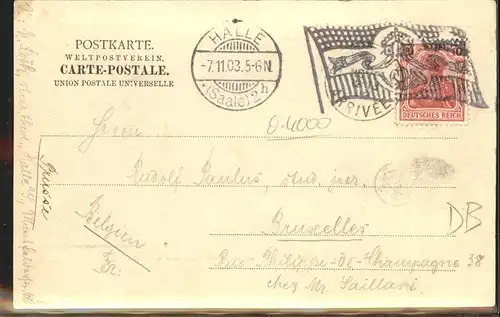 POSTKARTE.
WELTPOSTVEREIN.
CARTE-POSTALE.
UNION POSTALE UNIVERSELLE
HALLE
-7.11.03.5-6N.
(Saale) 2h
DEUTSCHES REICH
Herrn
0.4000
Rudolf Paulus, stud. jur.
Bruxelles
DB
Rue Philippe-de-Champagne 38
chez Mr. Saillard.
Belgien